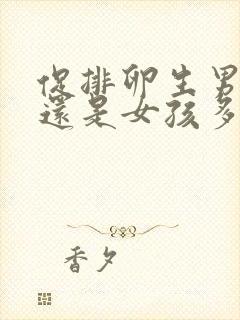 促排卵生男
還是女孩多
香夕